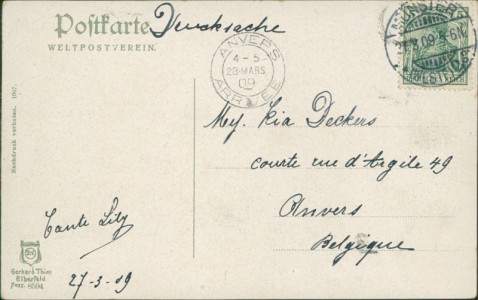 Postkarte
WELTPOSTVEREIN.
Drucksache
ANVERS
4-5
28 MARS
09
ARRIVEE
Mej. Kia Deckers
courte rue d'Argile 49
Anvers
Belgique
Tante Lily
27-3-09
Nachdruck verboten. 1907.
Gerhard Thien
Elberfeld